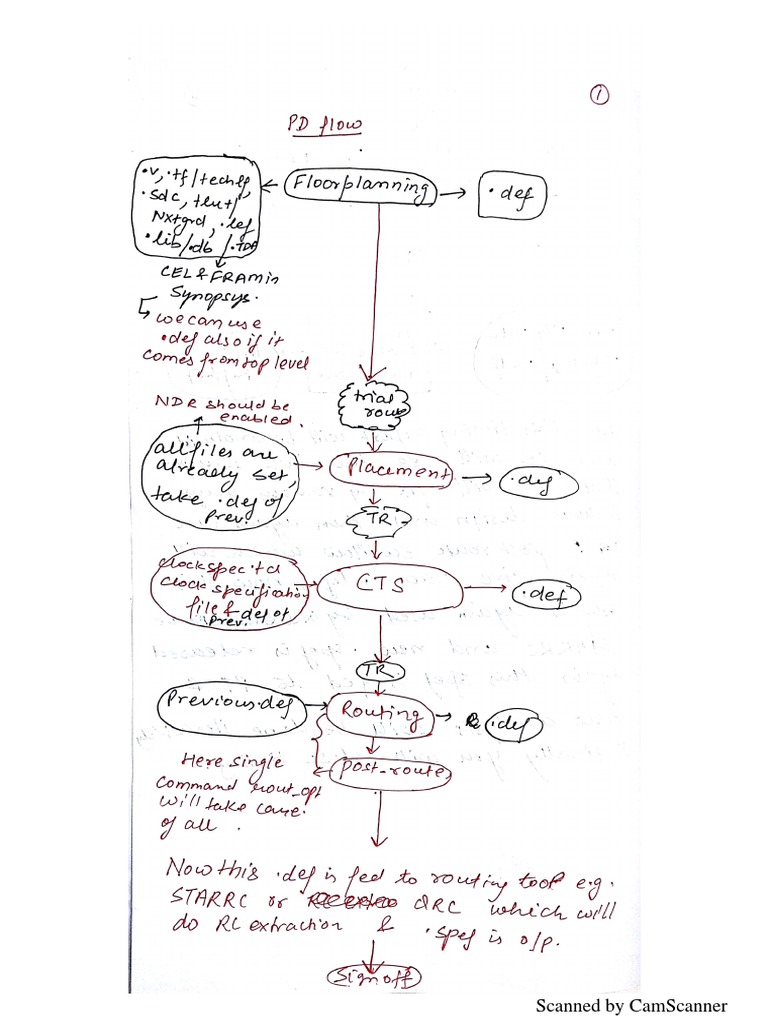 1
PD flow
.v, .tf/techlef,
.sdc, tlut,
Nxtgrd, .lef
.lib/.db /.TDF
Floorplanning
.def
CEL & FRAM in
Synopsys.
we can use
.def also if it
comes from top level
trial
route
NDR should be
enabled.
all files are
already set,
take .def of
prev.
Placement
.def
TR
clockspec.tcl
clock specification
file & def of
prev.
CTS
.def
TR
Previous.def
Routing
.def
Here single
command rout_opt
will take care
of all.
post_route
Now this .def is feed to routing tool e.g.
STARRC or QRC which will
do RC extraction & .spef is o/p.
Sign off
Scanned by CamScanner